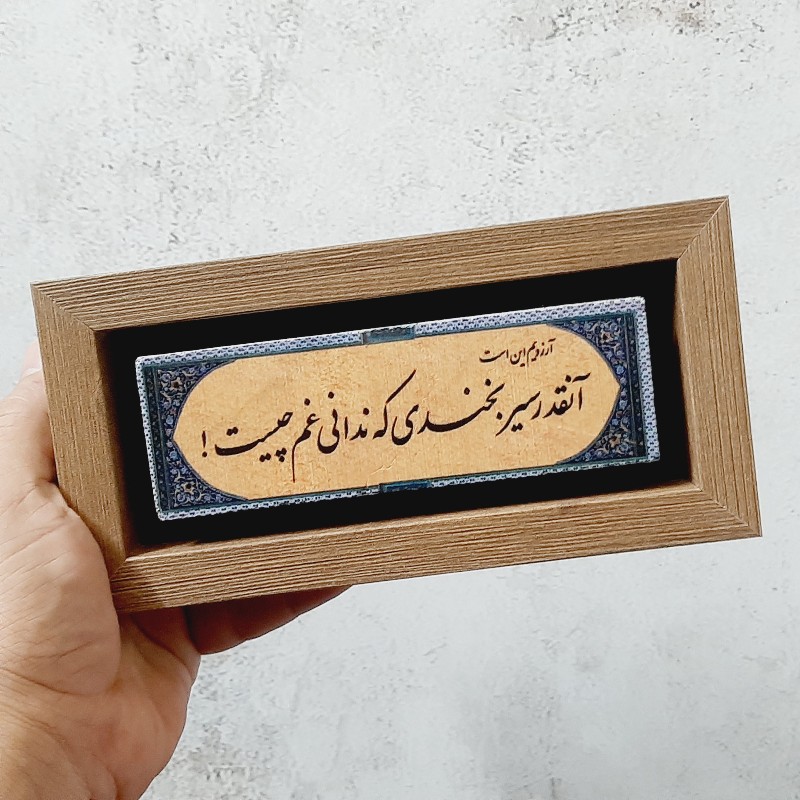 آرزویم این است
آنقدر سیر بخندی که ندانی غم چیست !